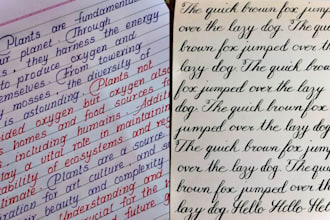 Plants are fundamental
ur planet. Through
they harness the energy
to produce oxygen and
emselves. From towering
mosses, the diversity of
is astounding. Plants not
ided oxygen but oxygen also
homes and food sources f
including humans. Addit
lay a vital role in maintaini
ability of ecosystems and re
Plants are a source
iration for art, culture, and s
beauty and complexity
Understanding and
crucial for the
future g
The quick brown fox jump
over the lazy dog. The qui
brown fox jumped over the
lazy dog. The quick brow
fox jumped over the lazy
dog. The quick brown fox
jumped over the lazy dog
The quick brown fox jum
over the lazy dog. The qu
brown fox jumped over th
lazy dog Hello Hello Hel